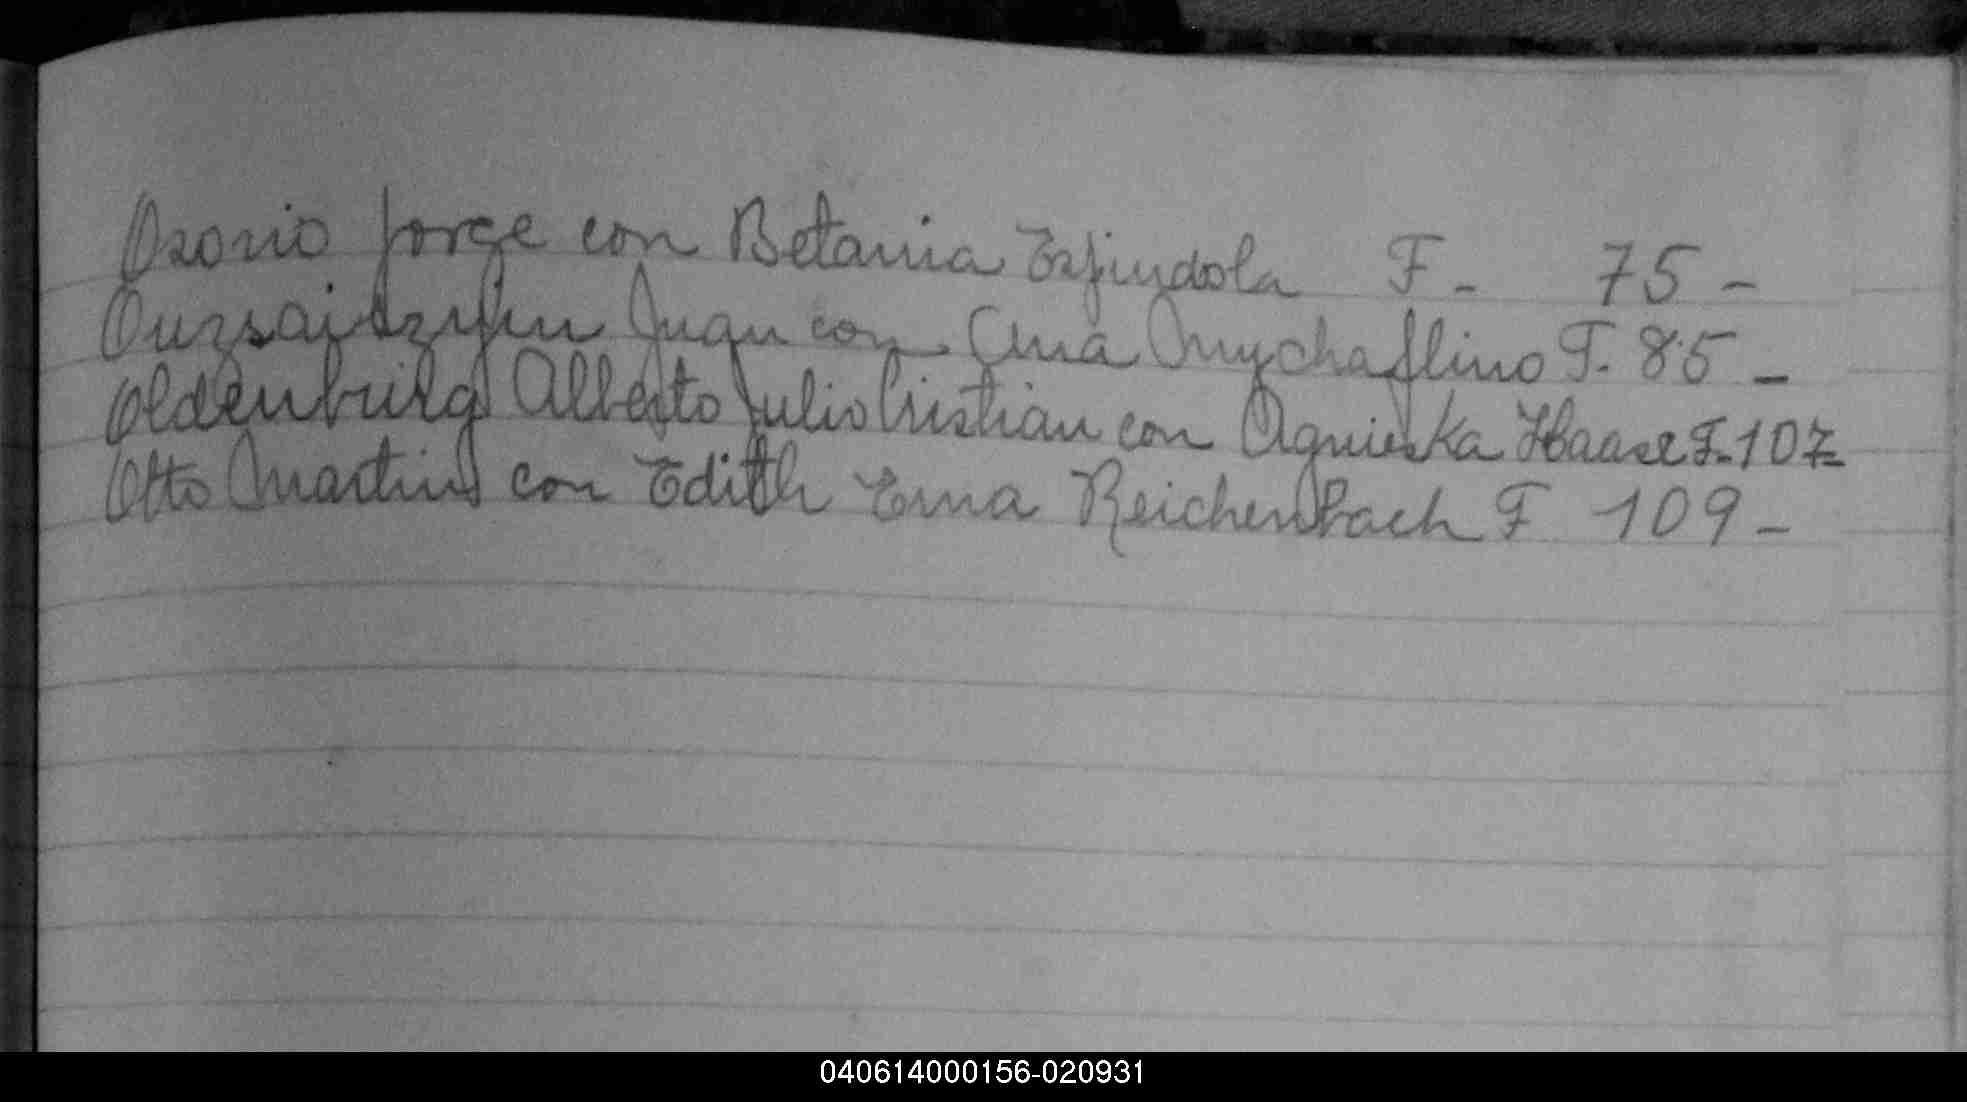 Osorio Jorge con Betania Espindola F - 75 -
Juan con Ana F. 85 -
Oldenburg Alberto Julio Cristian con Agnieska Haase F. 107-
Otto Martin con Edith Erna Reichenbach F 109 -
040614000156-020931